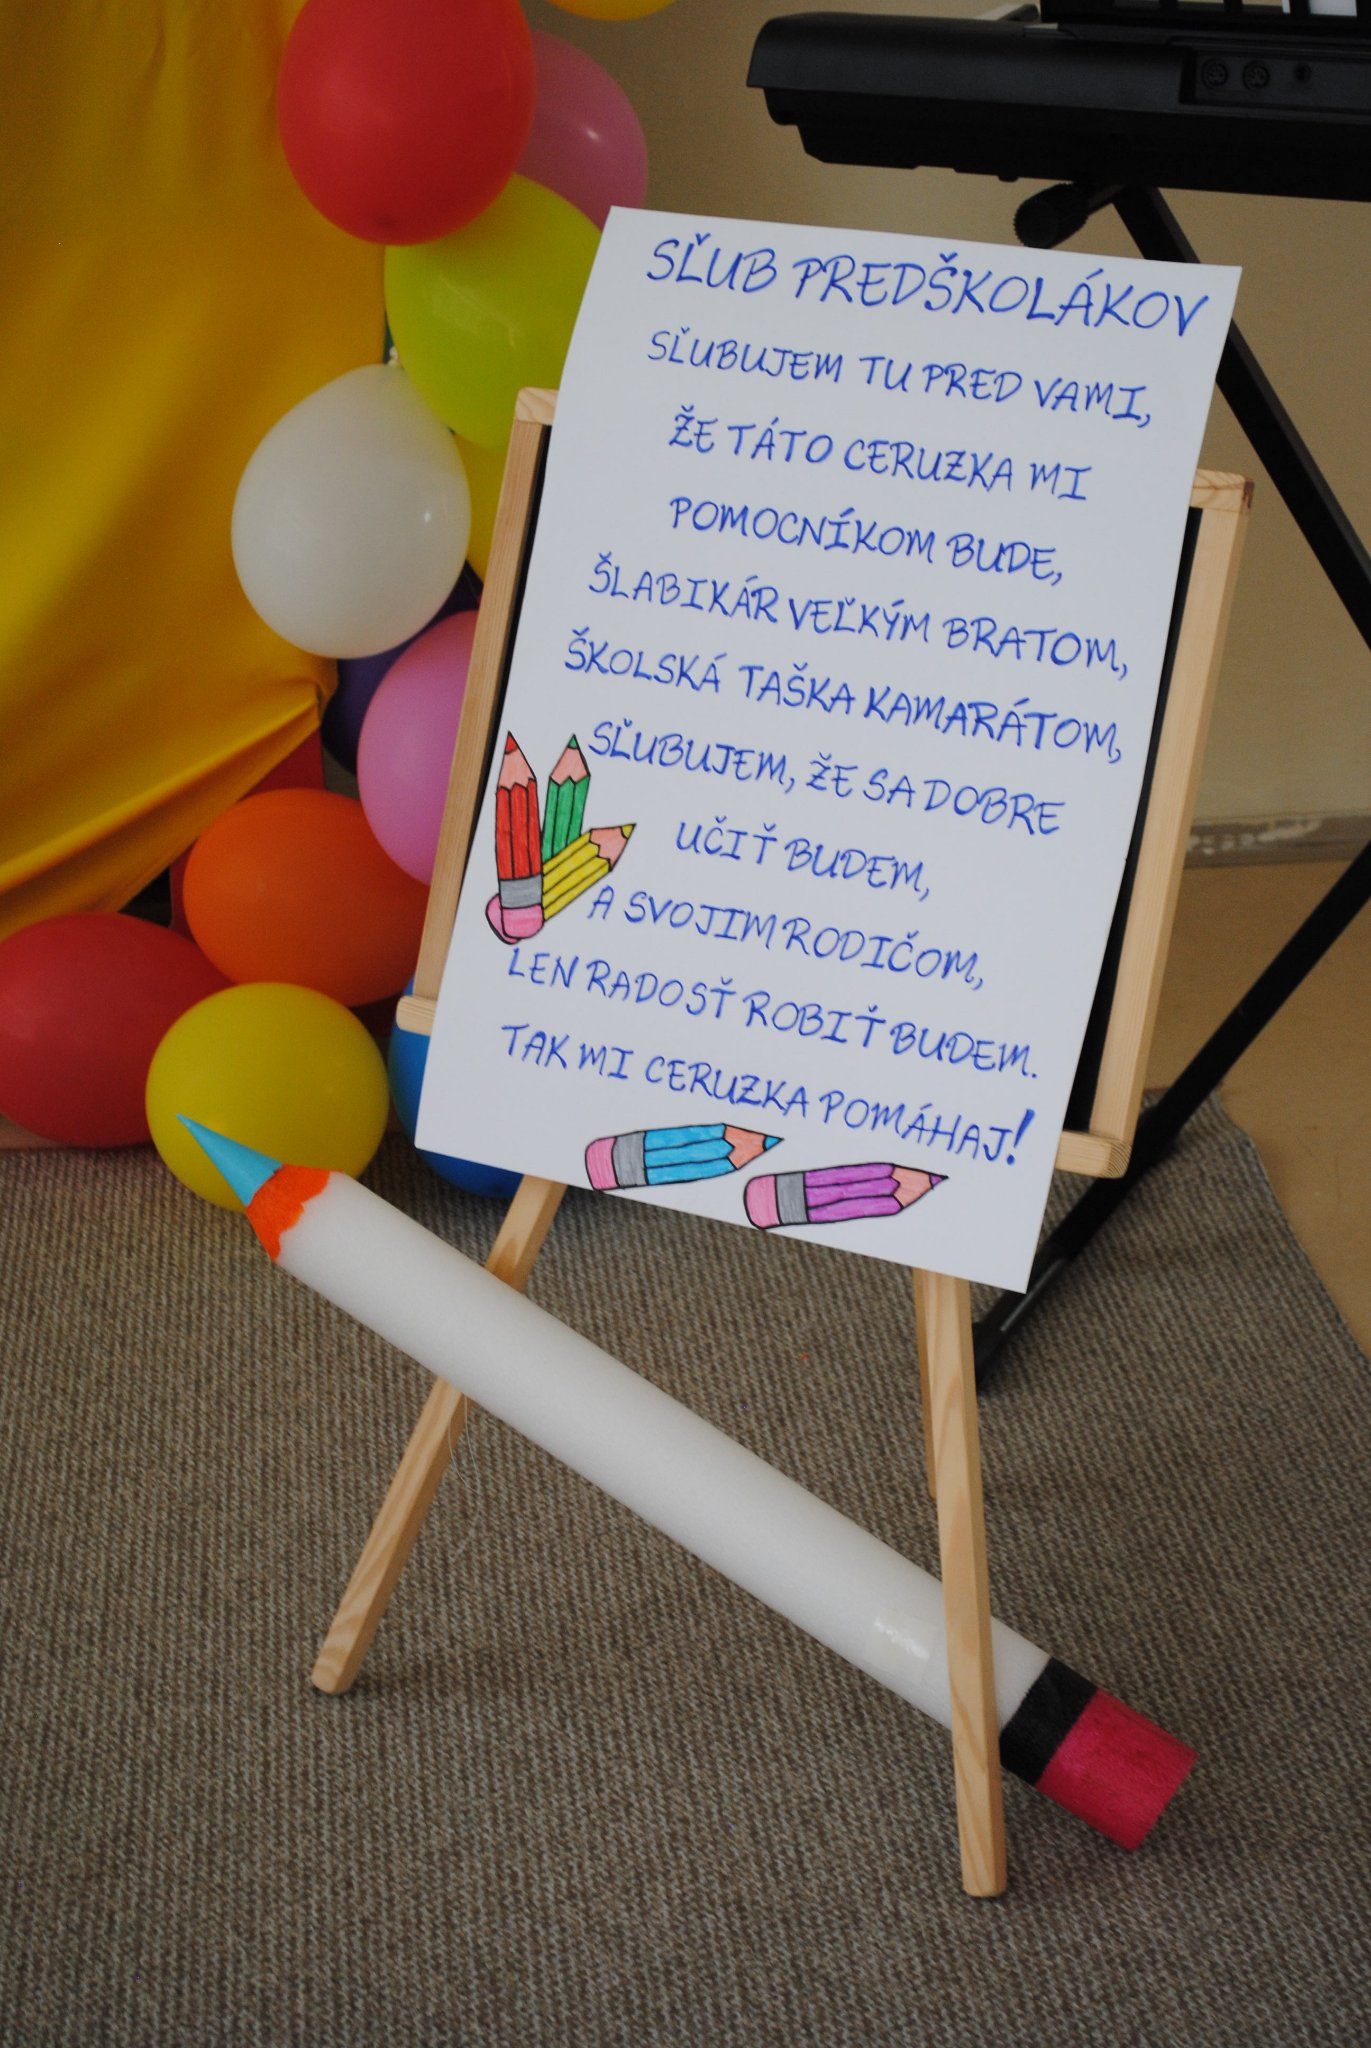 SĽUB PREDŠKOLÁKOV
SĽUBUJEM TU PRED VAMI,
ŽE TÁTO CERUZKA MI
POMOCNÍKOM BUDE,
ŠLABIKÁR VEĽKÝM BRATOM,
ŠKOLSKÁ TAŠKA KAMARÁTOM,
SĽUBUJEM, ŽE SA DOBRE
UČIŤ BUDEM,
A SVOJIM RODIČOM,
LEN RADOSŤ ROBIŤ BUDEM.
TAK MI CERUZKA POMÁHAJ!